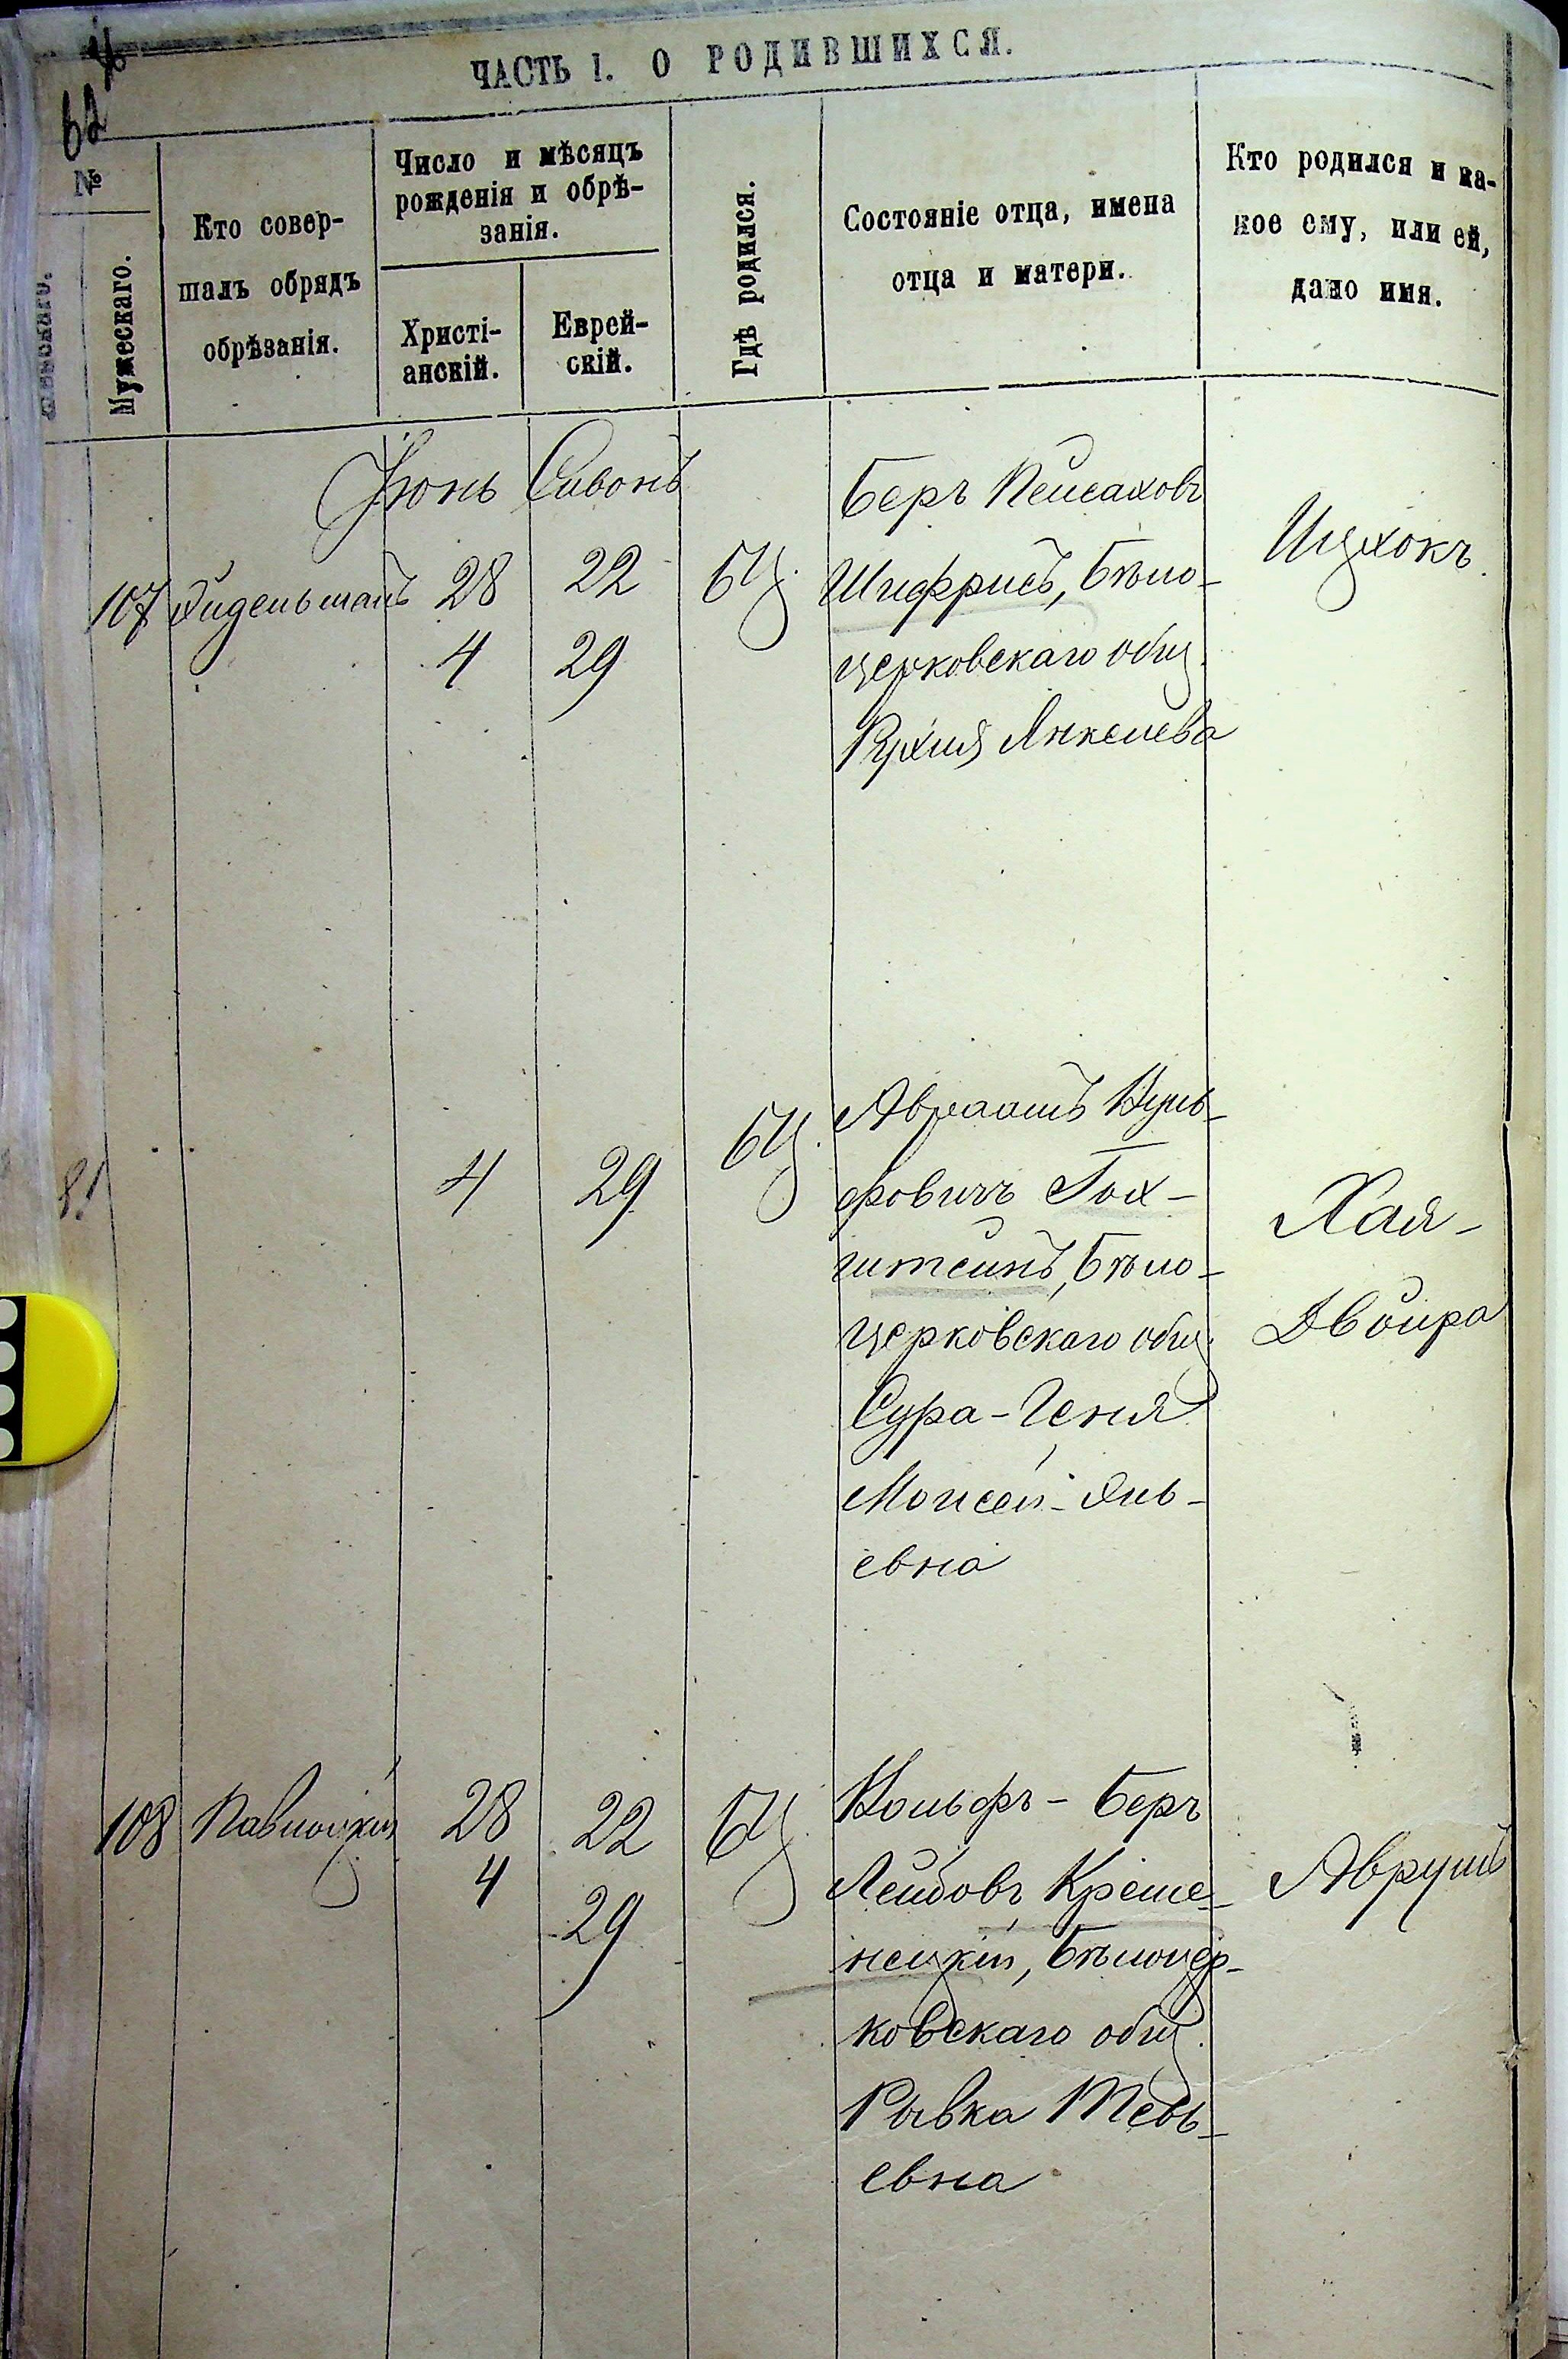 62
ЧАСТЬ I. О РОДИВШИХСЯ.
№
Женскаго.
Мужескаго.
Кто совер-
шалъ обрядъ
обрѣзанія.
Число и мѣсяцъ
рожденія и обрѣ-
занія.
Христі-
анскій.
Еврей-
скій.
Гдѣ родился.
Состояніе отца, имена
отца и матери.
Кто родился и ка-
кое ему, или ей,
дано имя.
Іюнь Сивонъ
107 Эйдельманъ 28 22 БЦ.
4 29
Беръ Пейсаховъ
Шифрисъ, Бѣло-
церковскаго общ.
Рухля Янкелева
Ицхокъ.
81 4 29 БЦ.
Авраамъ Вуль-
фовичъ Гох-
штейнъ, Бѣло-
церковскаго общ.
Сура-Геня
Моисей-Эль-
евна
Хая-
Двойра
108 Павлоцкій 28 22 БЦ.
4 29
Вольфъ-Беръ
Лейбовъ Креме-
нецкій, Бѣлоцер-
ковскаго общ.
Ривка Тевь-
евна
Аврумъ